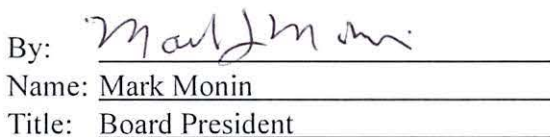 By: Mark J Monin
Name: Mark Monin
Title: Board President